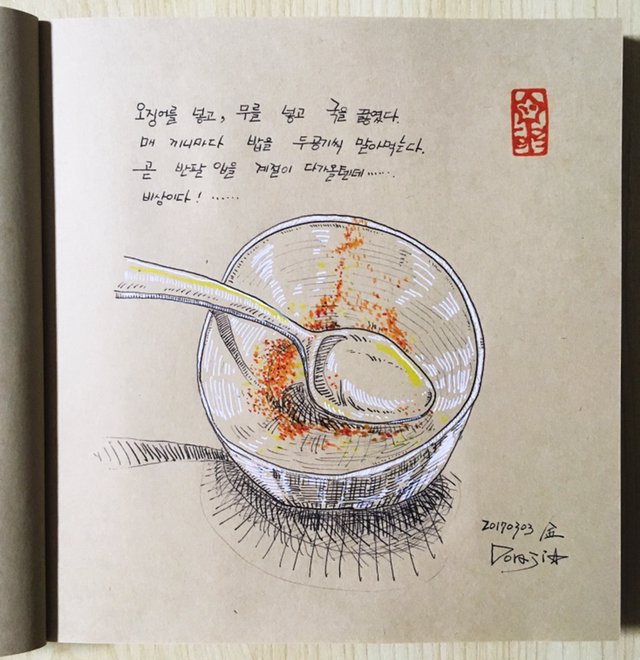 오징어를 넣고, 무를 넣고 국을 끓였다.
매 끼니마다 밥을 두공기씩 말아먹는다.
곧 반팔 입을 계절이 다가올텐데......
비상이다! ......
20170303 金
Doraji☆